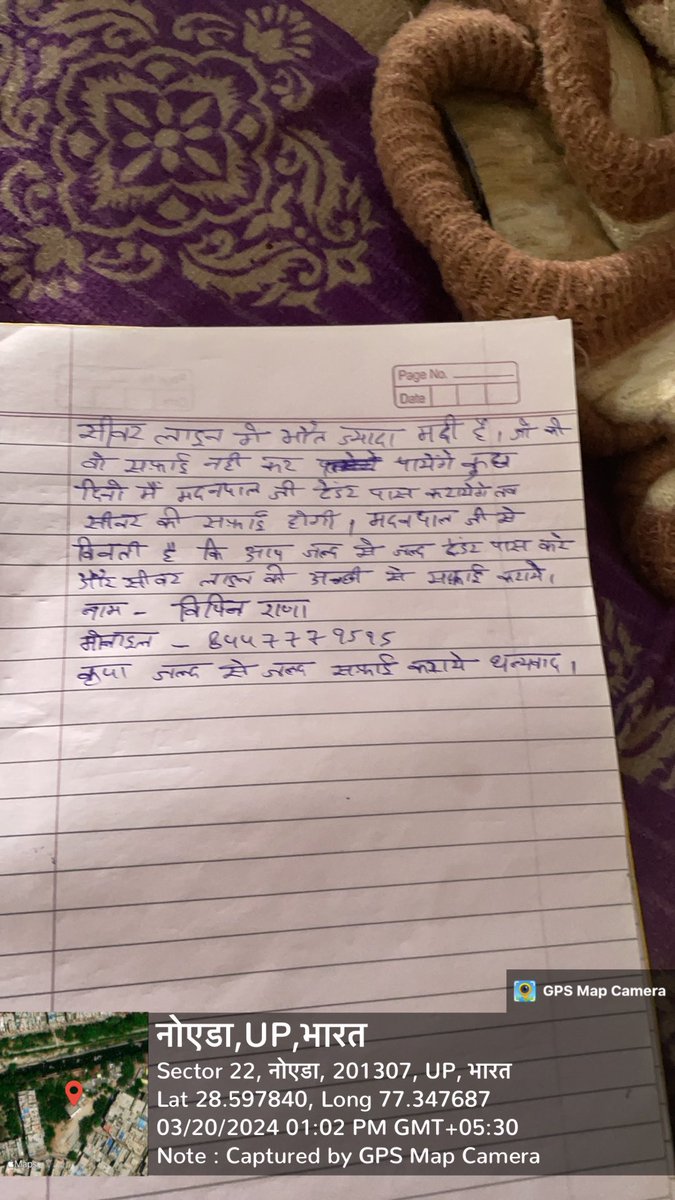 Page No.
Date
सीवर लाइन मे भौत ज्यादा मदी है। जो की
वो सफाई नही कर पायेंगे कुछ
दिनो मैं मदनपाल जी टेंडर पास करायेंगे तब
सीवर की सफाई होगी। मदनपाल जी से
विनती है कि आप जल्द से जल्द टेंडर पास करे
और सीवर लाइन की अच्छी से सफाई कराये।
नाम - विपिन राणा
मोबाइल - 8447779595
कृपा जल्द से जल्द सफाई कराये धन्यवाद।
GPS Map Camera
नोएडा,UP,भारत
Sector 22, नोएडा, 201307, UP, भारत
Lat 28.597840, Long 77.347687
03/20/2024 01:02 PM GMT+05:30
Note : Captured by GPS Map Camera
Maps